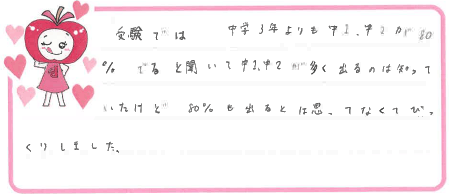 受験では 中学3年よりも中1、中2が80
% でると聞いて中1、中2が多く出るのは知って
いたけど 80%も出るとは思ってなくてびっ
くりしました、